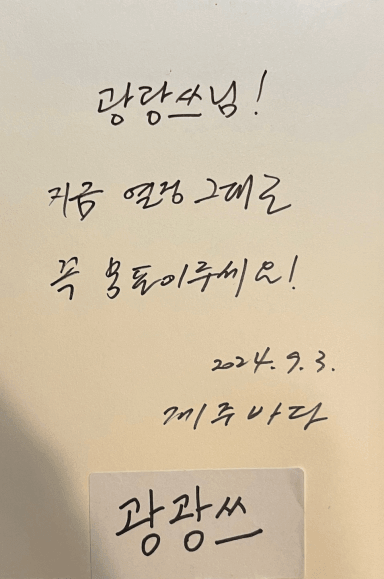 광랑쓰님!
지금 열정 그대로
꼭 이루세요!
2024. 9. 3.
제주바다
광광쓰